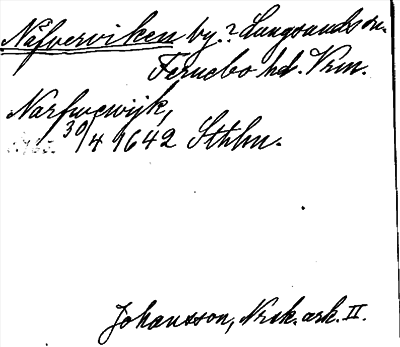 Näfverviken by.? Långsands sn.
Fernebo hd. Vrm.
Narfwewijk,
30/4 1642 Sthlm.
Johansson, Nrsk. ark. II.